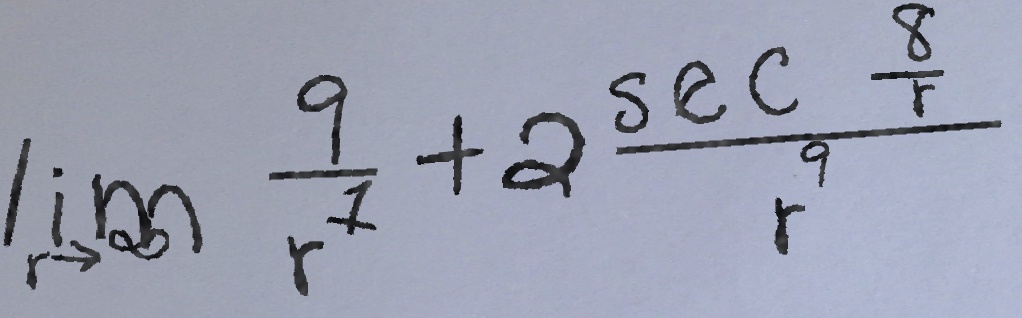 \lim_{r \to \infty} \frac{9}{r^7} + 2 \frac{\sec \frac{8}{r}}{r^9}